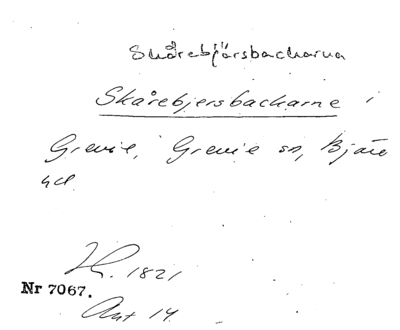 Skårebjärsbackarna
Skårebjersbackarne i
Grevie, Grevie sn, Bjäre
hd.
H. 1821
Nr 7067.
Ant 14.